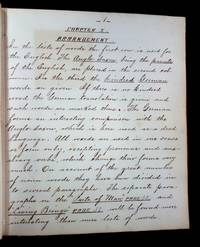 1
CHAPTER I
ARRANGEMENT.
In the lists of words the first row is used for
the English. The Anglo Saxon being the parents
of the English, are placed in the second col-
umn. In the third the kindred German
words are given. If there is no kindred
word the German translation is given and
such words are marked thus. The German
forms an interesting comparison with the
Anglo Saxon, which is now used as a dead
language. All words are used in one case
or form only, excepting pronouns and aux-
iliary verbs, which change their forms very
much. On account of the great number
of nouns words they have been divided in-
to several paragraphs. The separate para-
graphs as the Lists of Man, and
Living Beings will be found more
interesting than mere lists of words